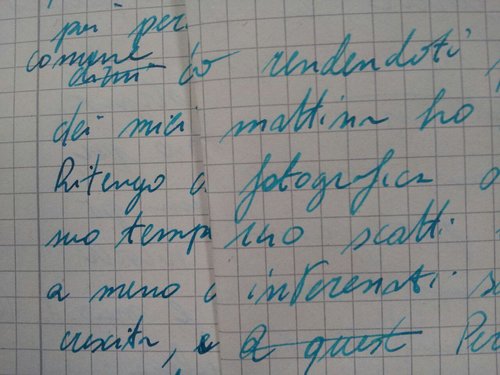 più per
comune
dirmi co rendendoti
dei miei mattina ho
Ritengo a fotografica
suo tempo scatti
a meno interenati
crescita, e a quest Per